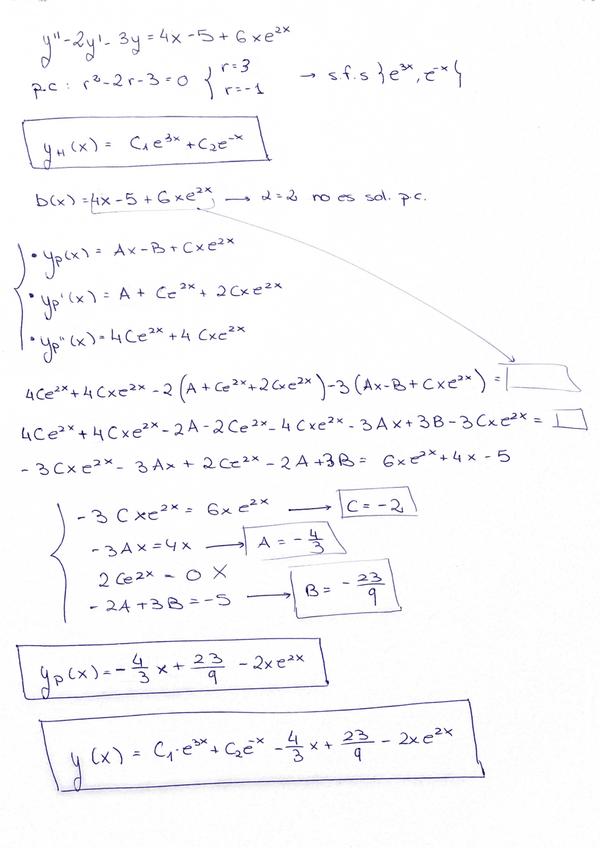 y'' - 2y' - 3y = 4x - 5 + 6xe^{2x}
p.c: r² - 2r - 3 = 0 { r = 3 r = -1 → s.f.s {e^{3x}, e^{-x}}
y_H(x) = C₁e^{3x} + C₂e^{-x}
b(x) = 4x - 5 + 6xe^{2x} → α = 2 no es sol. p.c.
• y_p(x) = Ax - B + Cxe^{2x}
• y_p'(x) = A + Ce^{2x} + 2Cxe^{2x}
• y_p''(x) = 4Ce^{2x} + 4Cxe^{2x}
4Ce^{2x} + 4Cxe^{2x} - 2(A + Ce^{2x} + 2Cxe^{2x}) - 3(Ax - B + Cxe^{2x}) = □
4Ce^{2x} + 4Cxe^{2x} - 2A - 2Ce^{2x} - 4Cxe^{2x} - 3Ax + 3B - 3Cxe^{2x} = □
- 3Cxe^{2x} - 3Ax + 2Ce^{2x} - 2A + 3B = 6xe^{2x} + 4x - 5
- 3Cxe^{2x} = 6xe^{2x} → C = -2
- 3Ax = 4x → A = -4/3
2Ce^{2x} = 0 X
- 2A + 3B = -5 → B = -23/9
y_p(x) = -4/3 x + 23/9 - 2xe^{2x}
y(x) = C₁·e^{3x} + C₂e^{-x} - 4/3 x + 23/9 - 2xe^{2x}